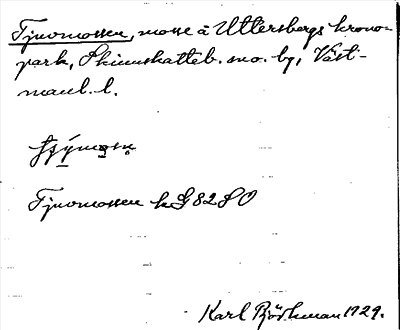 Tjuomossen, mosse å Uttersbergs krono-
park, Skinnskatteb. sn o. bg, Väst-
manl. l.
Tjuomossen kG 82 SO
Karl 1929.